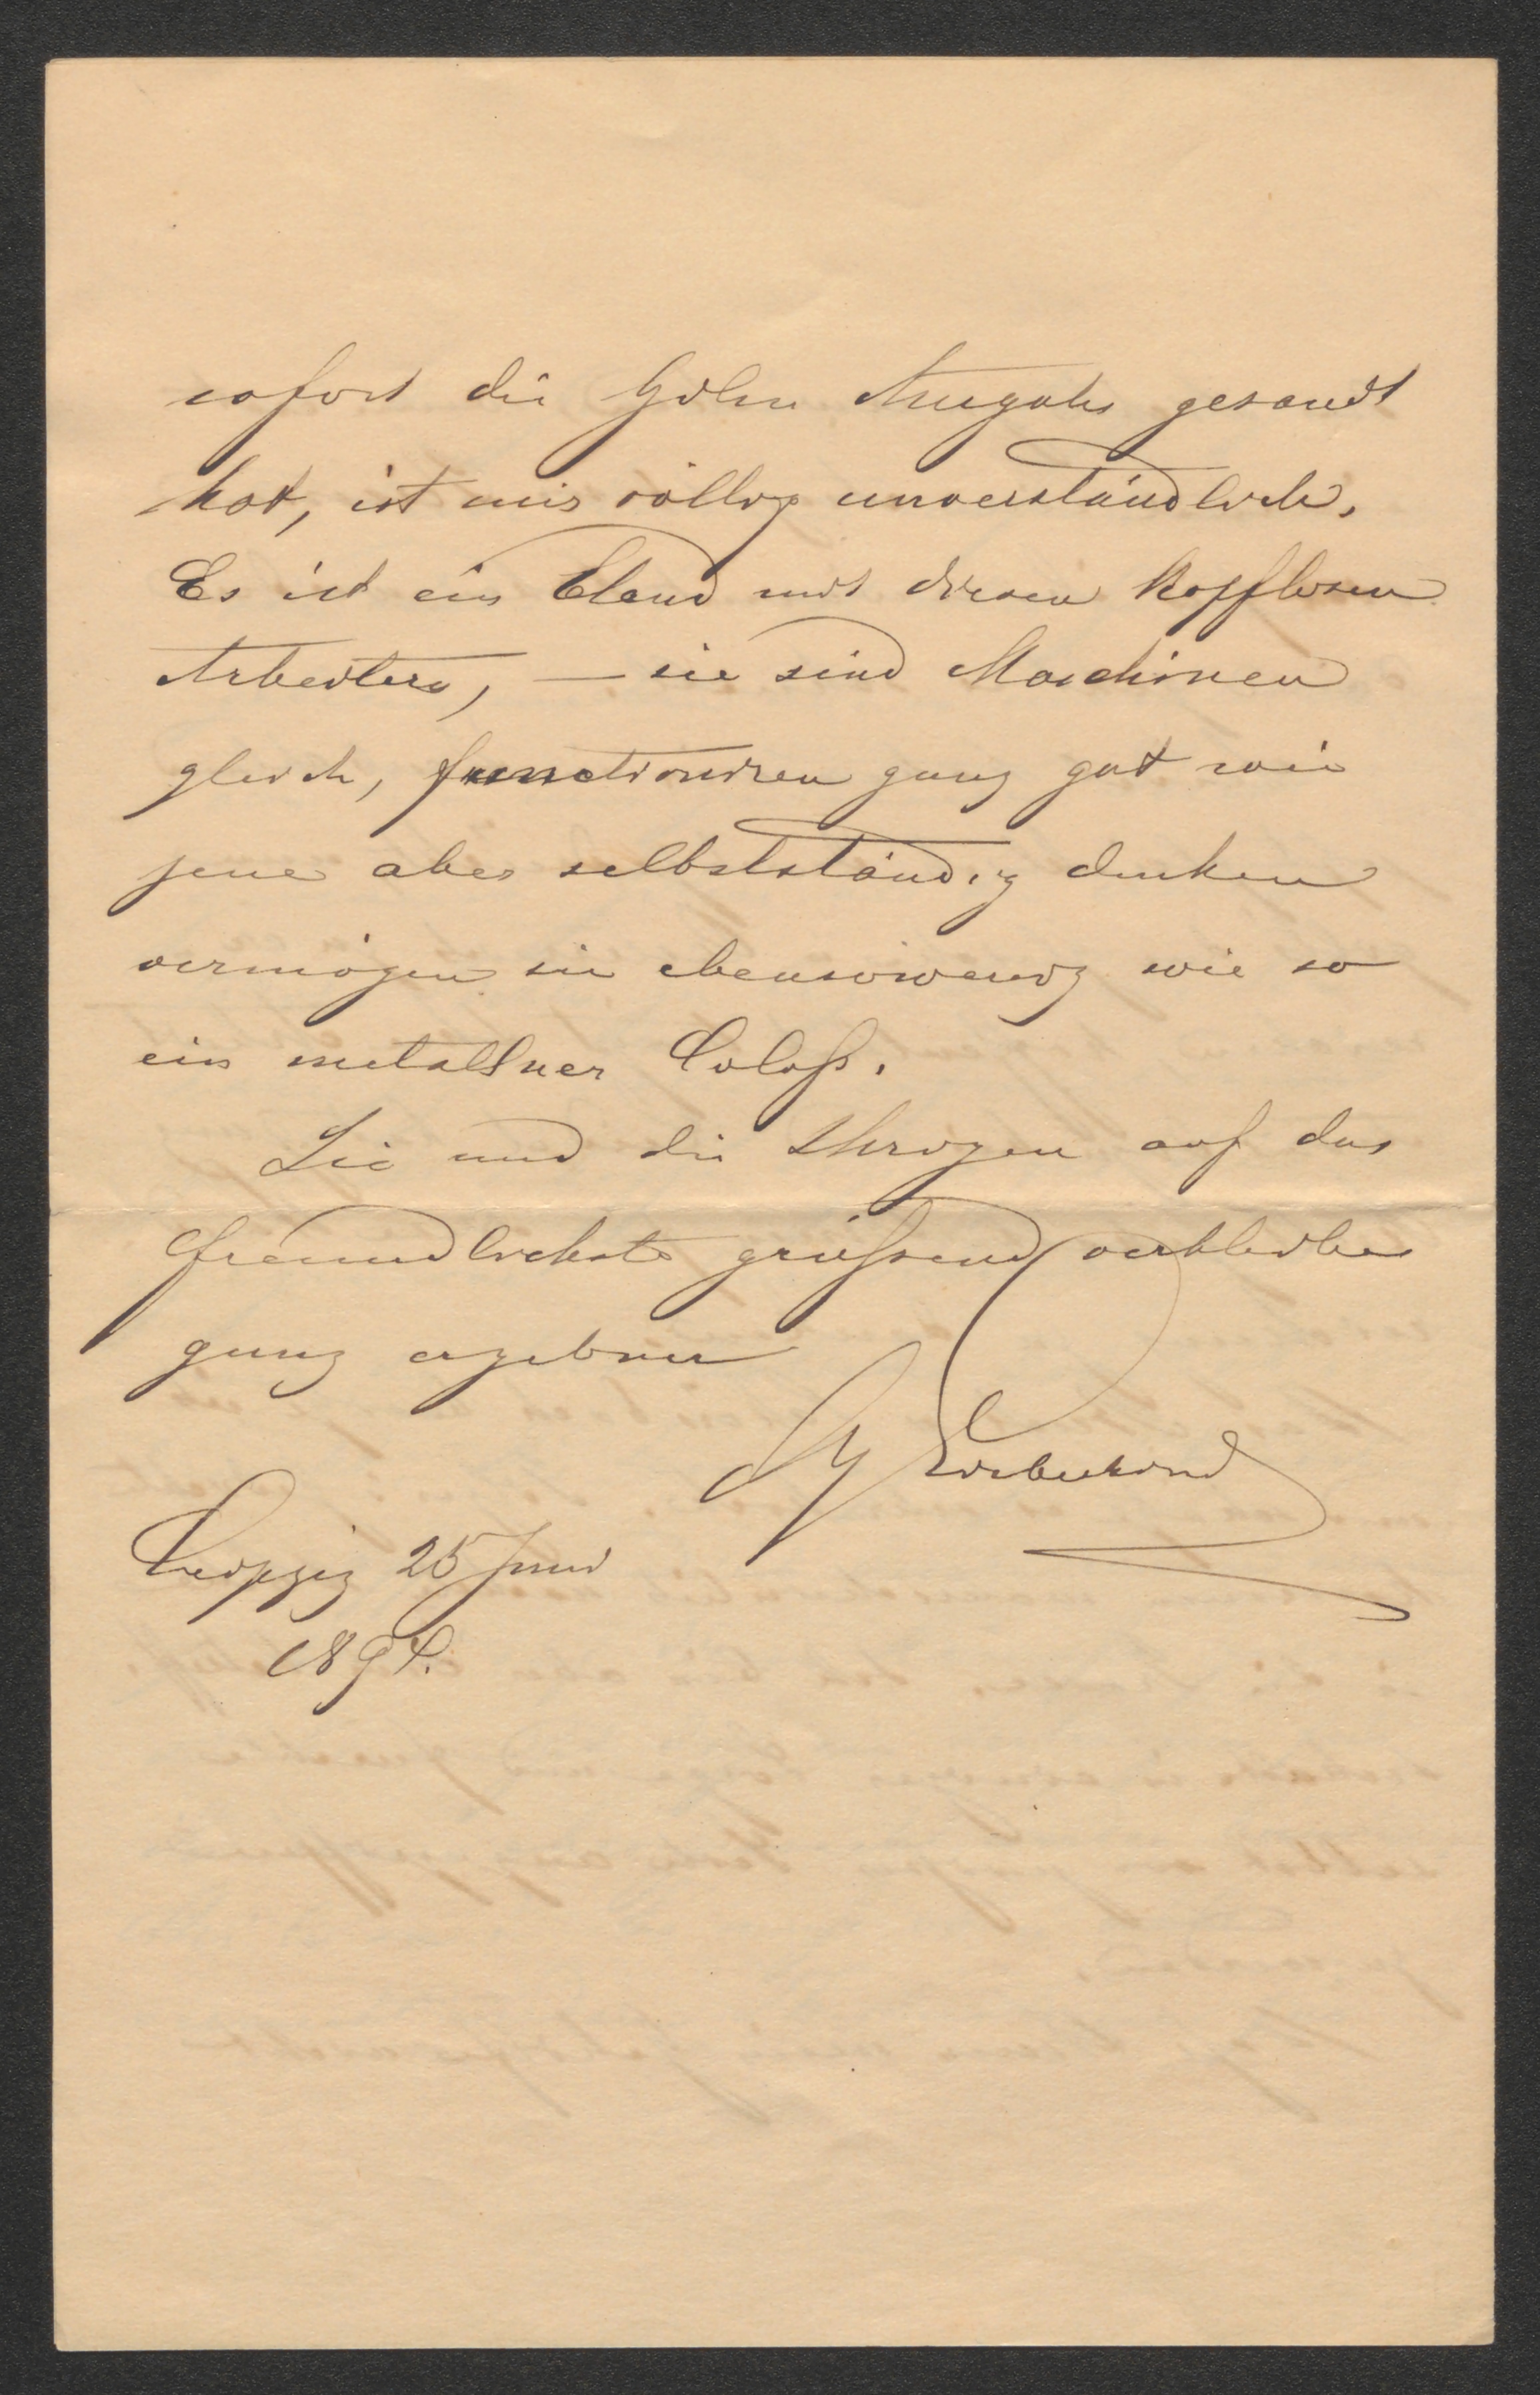 sofort die Ausgabe gesandt
hat, ist mir völlig unverständlich.
Es ist ein Elend mit diesen kopflosen
Arbeitern, — sie sind Maschinen
gleich, functioniren ganz gut wie
jene aber selbstständig denken
vermögen sie ebensowenig wie so
ein metallner Coloß.
Sie und die Ihrigen auf das
freundlichste grüßend verbleibe
ganz ergebner
Leipzig 25 Juni
1894.